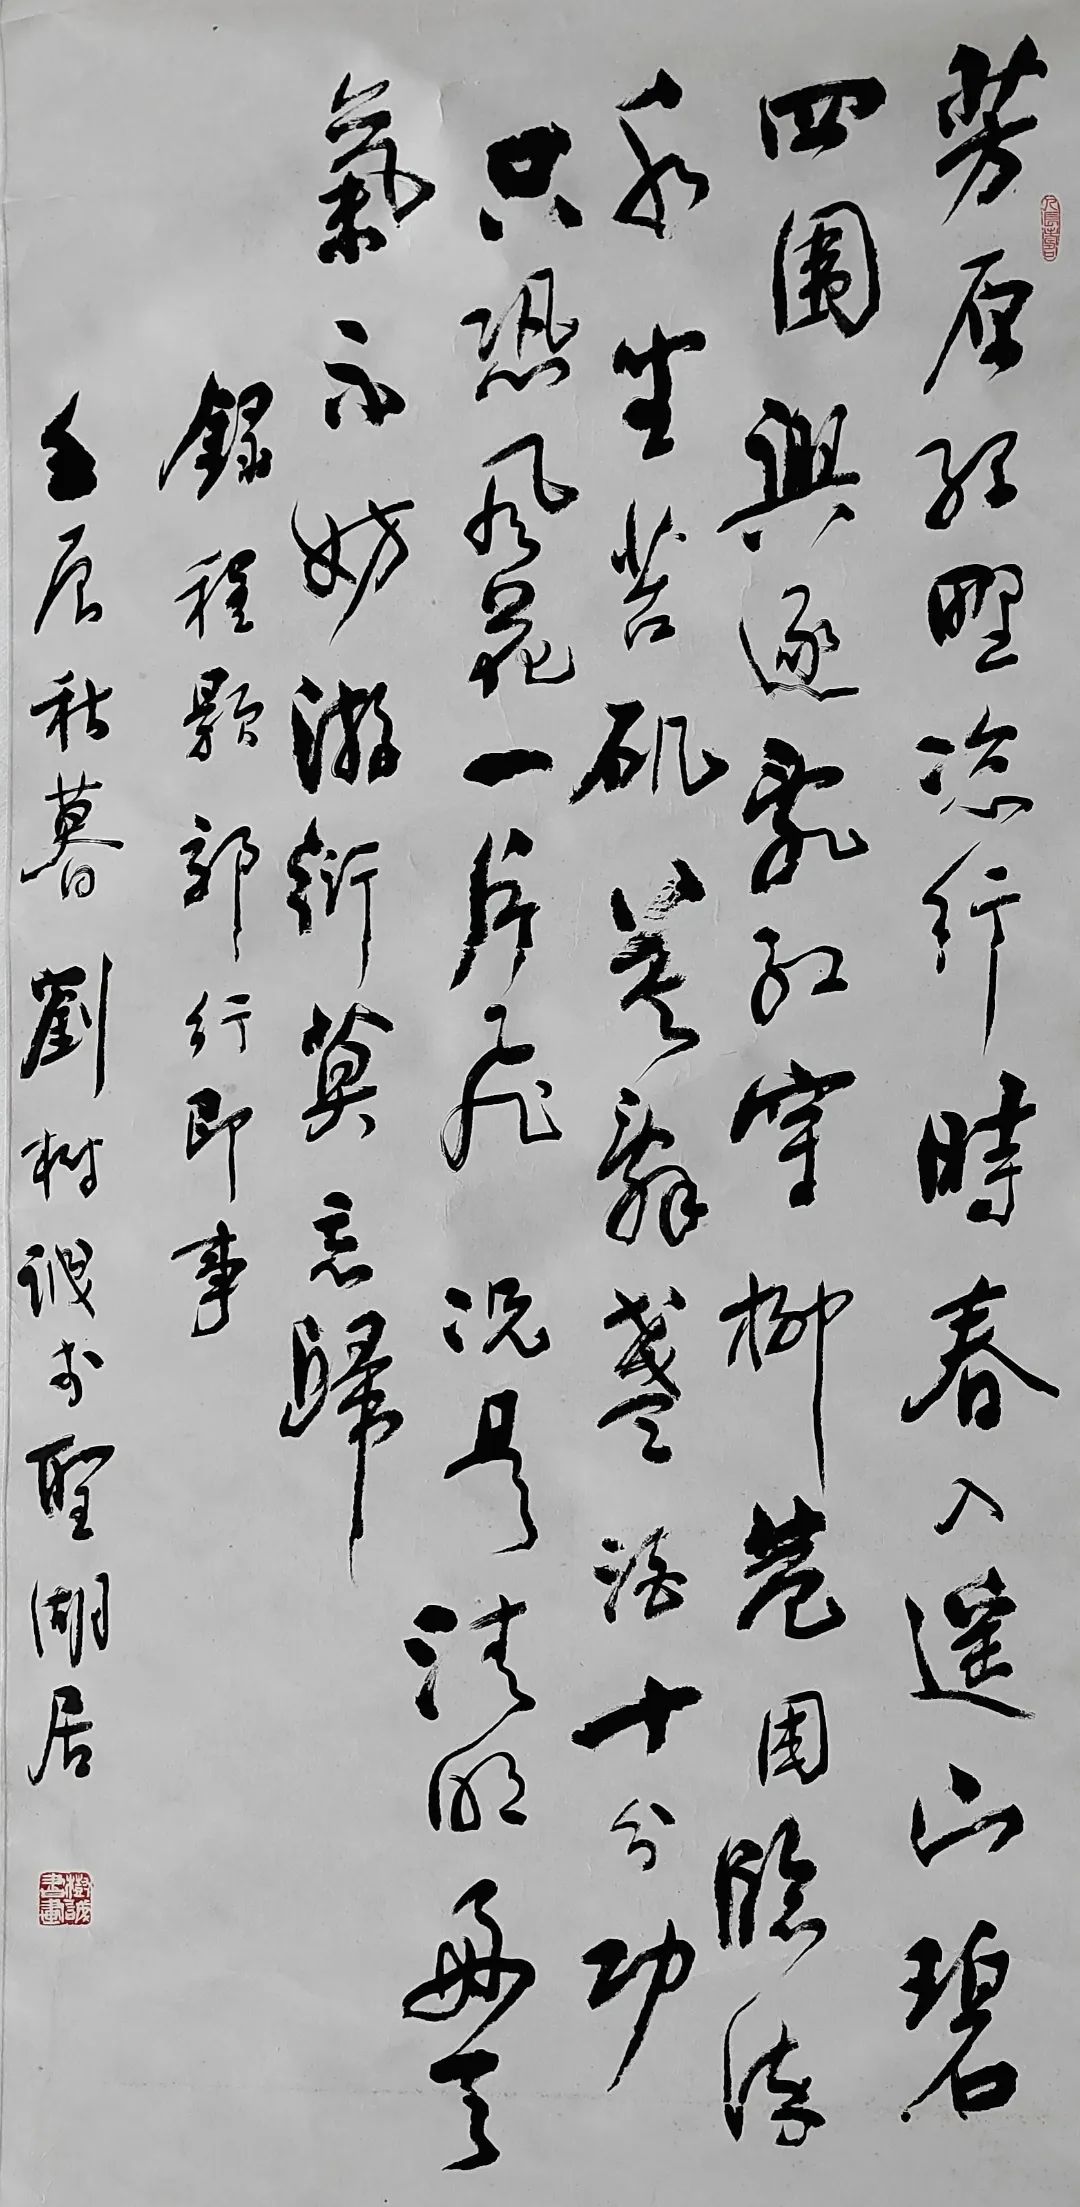 芳原綠野恣行時春入遥山碧
四圍興逐亂紅穿柳巷困臨流
水坐苔矶莫辭盞酒十分功
只恐風花一片飛況是清明好天
氣不妨游衍莫忘歸
錄程顥郊行即事
壬辰秋暮劉樹誠於聖湖居
樹誠書畫